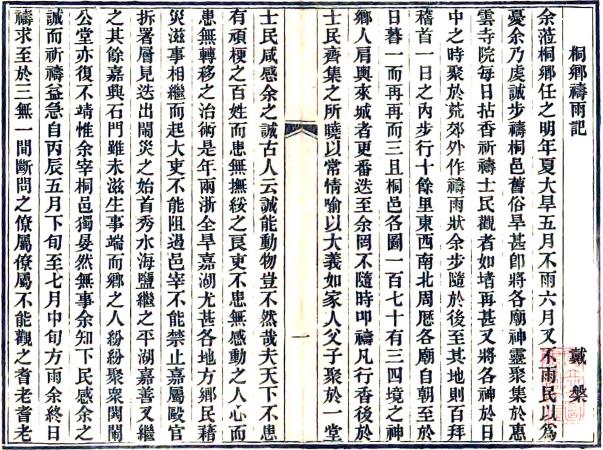 桐鄉禱雨記
戴槃
余蒞桐鄉任之明年夏大旱五月不雨六月又不雨民以爲
憂余乃虔誠步禱桐邑舊俗旱甚卽將各廟神靈聚集於惠
雲寺院每日拈香祈禱士民觀者如堵再甚又將各神於日
中之時聚於荒郊外作禱雨狀余步隨於後至其地則百拜
稽首一日之內步行十餘里東西南北周歷各廟自朝至於
日暮一而再再而三且桐邑各圖一百七十有三四境之神
鄉人肩輿來城者更番迭至余罔不隨時叩禱凡行香後於
士民齊集之所曉以常情喻以大義如家人父子聚於一堂
一
士民咸感余之誠古人云誠能動物豈不然哉夫天下不患
有頑梗之百姓而患無撫綏之良吏不患無感動之人心而
患無轉移之治術是年兩浙全旱嘉湖尤甚各地方鄉民藉
災滋事相繼而起大吏不能阻遏邑宰不能禁止嘉屬毆官
拆署層見迭出鬧災之始首秀水海鹽繼之平湖嘉善又繼
之其餘嘉興石門雖未滋生事端而鄉之人紛紛聚衆鬨鬧
公堂亦復不靖惟余宰桐邑獨晏然無事余知下民感余之
誠而祈禱益急自丙辰五月下旬至七月中旬方雨余終日
禱求至於三無一間斷問之僚屬僚屬不能觀之耆老耆老